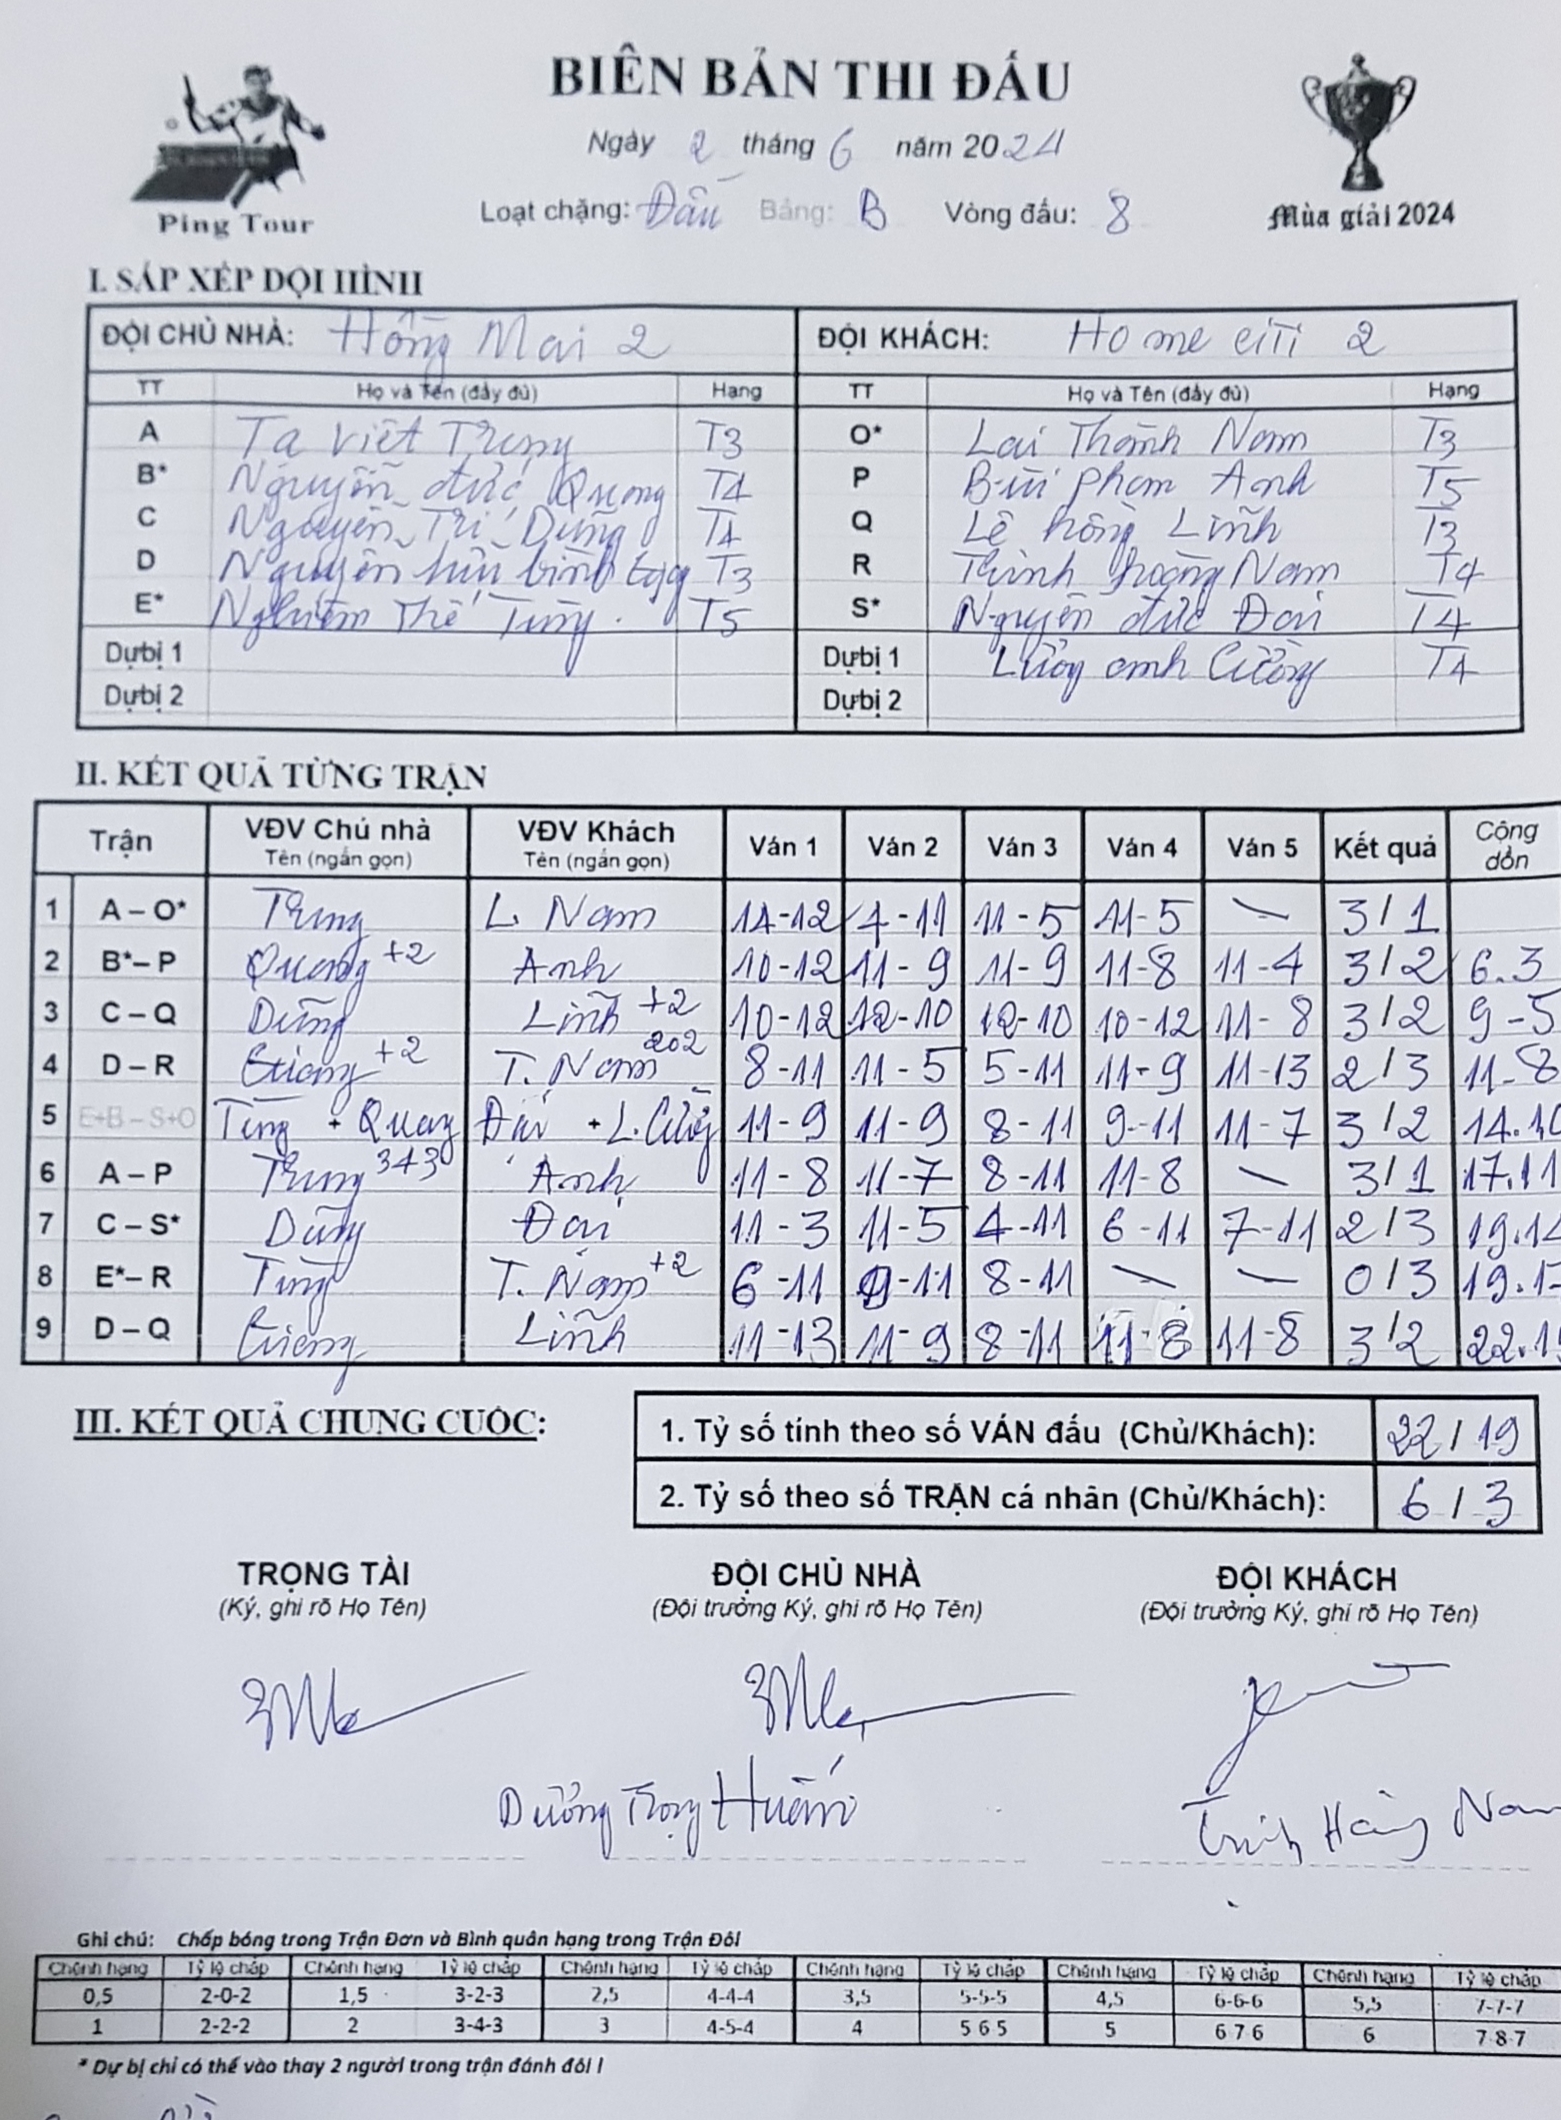 BIÊN BẢN THI ĐẤU
Ngày 2 tháng 6 năm 2024
Ping Tour
Loạt chặng: Đấu Bảng: B Vòng đấu: 8
Mùa giải 2024
I. SẮP XẾP ĐỘI HÌNH
ĐỘI CHỦ NHÀ: Hồng Mai 2 ĐỘI KHÁCH: Home citi 2
TT Họ và Tên (đầy đủ) Hạng TT Họ và Tên (đầy đủ) Hạng
A Tạ Viết Trung T3 O* Lại Thành Nam T3
B* Nguyễn đức Quang T4 P Bùi Phạm Anh T5
C Nguyễn Trí Dũng T4 Q Lê hồng Lĩnh T3
D Nguyễn hữu bình T3 R Trịnh hoàng Nam T4
E* Nghiêm Thế Tùng. T5 S* Nguyễn đức Đại T4
Dự bị 1 Dự bị 1 Lương anh Cường T4
Dự bị 2 Dự bị 2
II. KẾT QUẢ TỪNG TRẬN
Trận VĐV Chủ nhà Tên (ngắn gọn) VĐV Khách Tên (ngắn gọn) Ván 1 Ván 2 Ván 3 Ván 4 Ván 5 Kết quả Cộng dồn
1 A – O* Trung L. Nam 14-12 4-11 11-5 11-5 — 3/1
2 B* – P Quang +2 Anh 10-12 11-9 11-9 11-8 11-4 3/2 6.3
3 C – Q Dũng Lĩnh +2 10-12 12-10 12-10 10-12 11-8 3/2 9-5
4 D – R +2 T. Nam 202 8-11 11-5 5-11 11-9 11-13 2/3 11-8
5 E+B – S+O Tùng + Quang Đại + L. Cường 11-9 11-9 8-11 9-11 11-7 3/2 14.10
6 A – P Trung 343 Anh 11-8 11-7 8-11 11-8 — 3/1 17.11
7 C – S* Dũng Đại 11-3 11-5 4-11 6-11 7-11 2/3 19.14
8 E* – R Tùng T. Nam +2 6-11 9-11 8-11 — — 0/3 19.1
9 D – Q Lĩnh 11-13 11-9 8-11 11-8 11-8 3/2 22.1
III. KẾT QUẢ CHUNG CUỘC:
1. Tỷ số tính theo số VÁN đấu (Chủ/Khách): 22/19
2. Tỷ số theo số TRẬN cá nhân (Chủ/Khách): 6/3
TRỌNG TÀI ĐỘI CHỦ NHÀ ĐỘI KHÁCH
(Ký, ghi rõ Họ Tên) (Đội trưởng Ký, ghi rõ Họ Tên) (Đội trưởng Ký, ghi rõ Họ Tên)
Dương Trọng
Trịnh Hoàng Nam
Ghi chú: Chấp bóng trong Trận Đơn và Bình quân hạng trong Trận Đôi
Chênh hạng Tỷ lệ chấp Chênh hạng Tỷ lệ chấp Chênh hạng Tỷ lệ chấp Chênh hạng Tỷ lệ chấp Chênh hạng Tỷ lệ chấp Chênh hạng Tỷ lệ chấp
0,5 2-0-2 1,5 3-2-3 2,5 4-4-4 3,5 5-5-5 4,5 6-6-6 5,5 7-7-7
1 2-2-2 2 3-4-3 3 4-5-4 4 5 6 5 5 6 7 6 6 7-8-7
* Dự bị chỉ có thể vào thay 2 người trong trận đánh đôi !